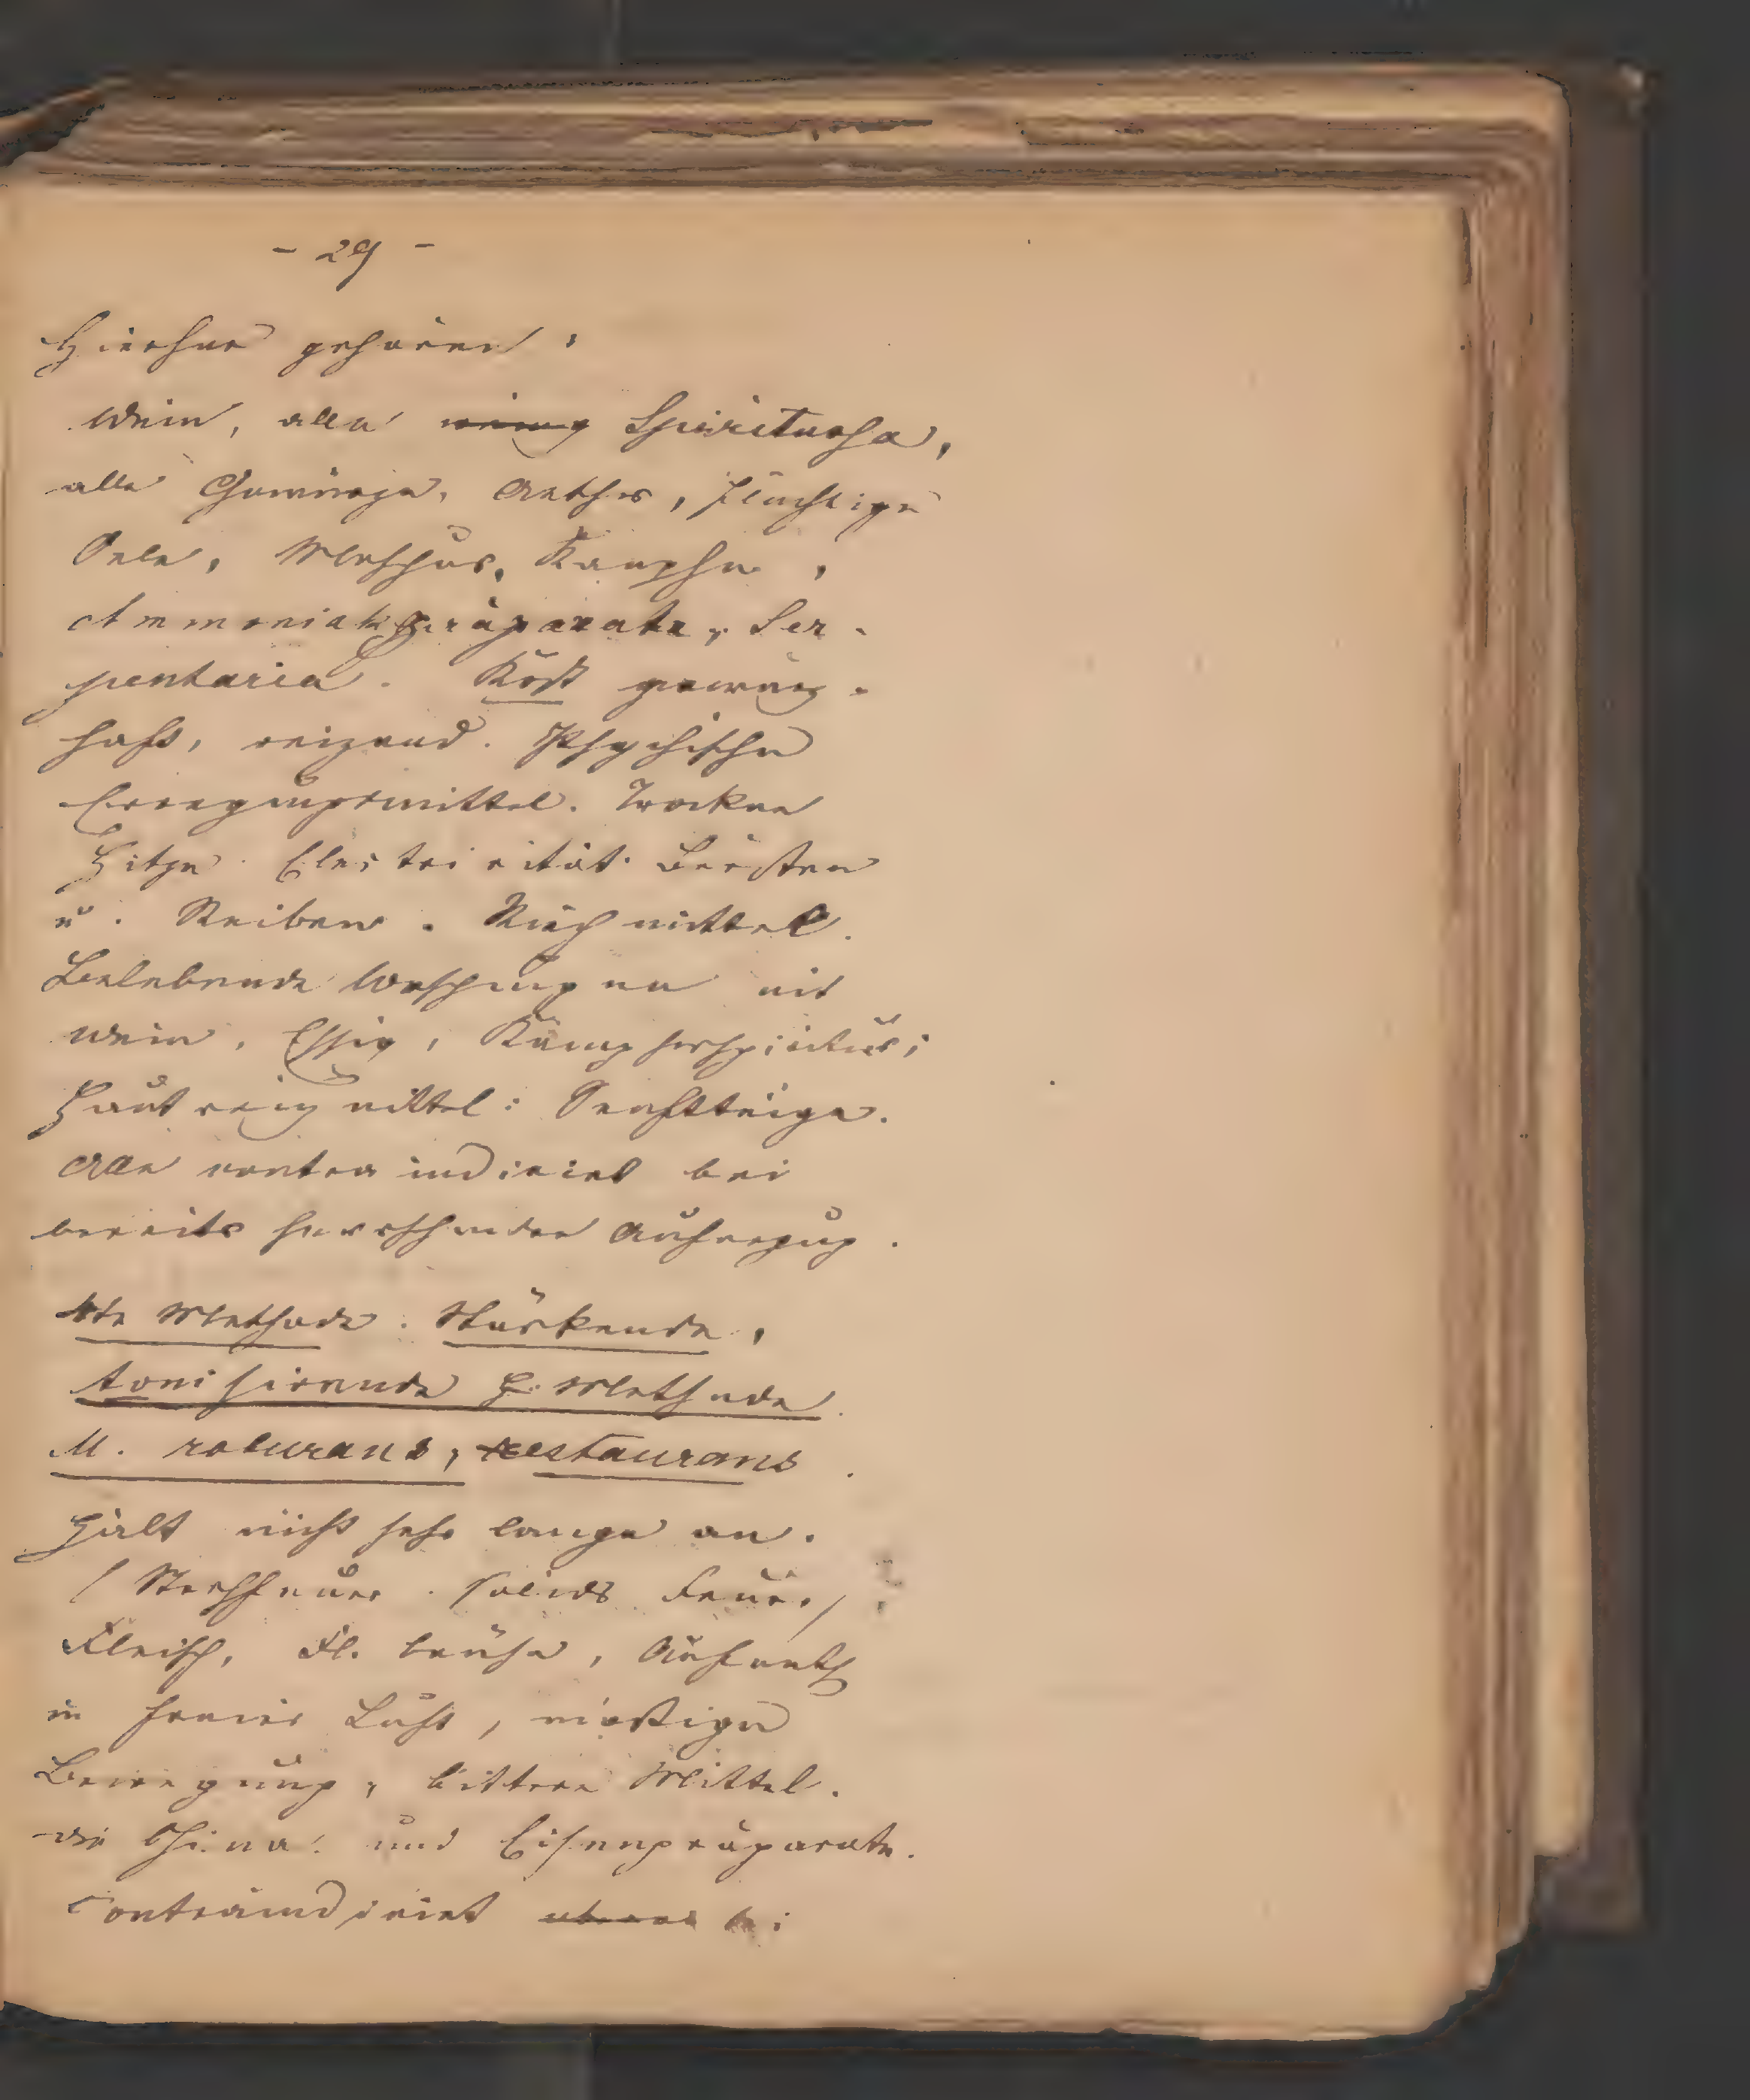 - 29 -
Hierher gehören:
Wein, alle Spirituosa,
alle Gewürze, Aether, flüchtige
Oele, Moschus, Kampher,
Ammoniakpräparate, Ser-
pentaria. Kost gewürz-
haft, reizend. Psychische
Erregungsmittel. Trockne
Hitze. Electricität. Bürsten
u. Reiben. Riechmittel.
Belebende Waschungen mit
Wein, Essig, Kampherspiritus;
Hautreizmittel: Senfteige.
Alle contraindicirt bei
bereits herrschender Aufregung.
4te Methode. Stärkende,
tonisirende H. Methode.
M. roburans, restaurans.
Hält nicht sehr lange an.
(Strohfeuer. solides Feuer)
Fleisch, Fl. brühe, Aufenth
in freier Luft, mäßige
Bewegung, bittere Mittel.
die China. und Eisenpräparate.
Contraindicirt bei